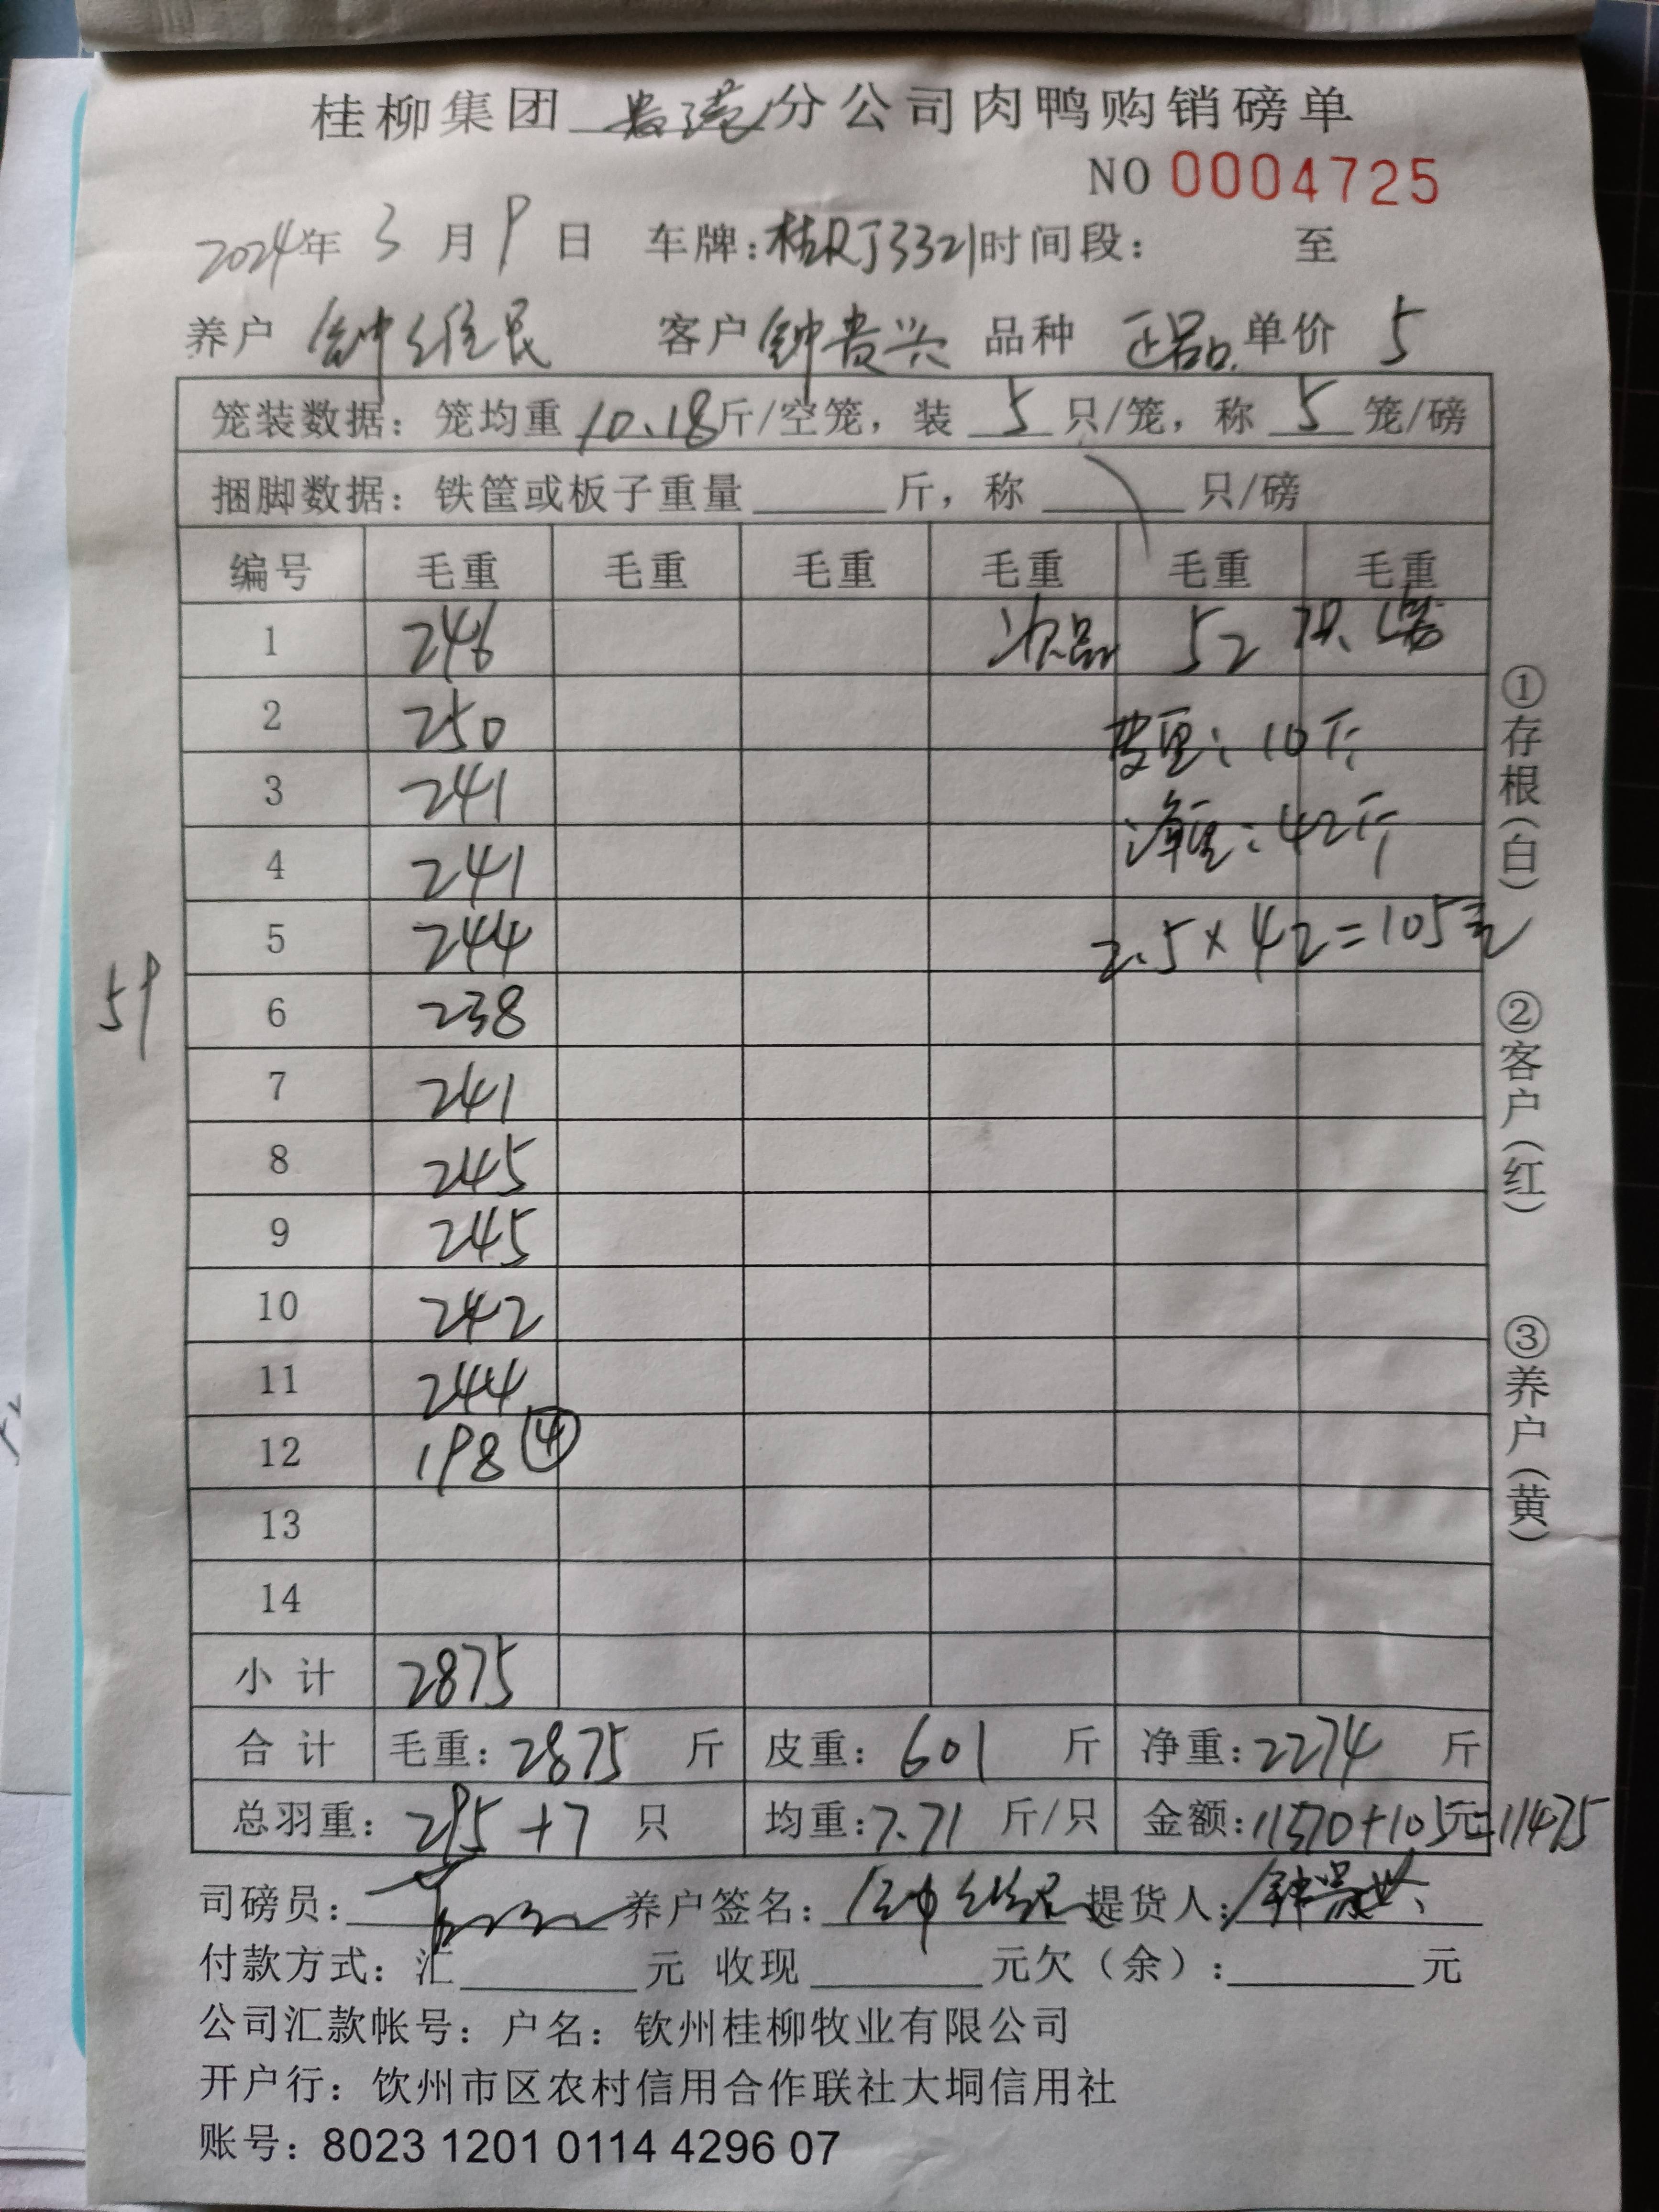 桂柳集团 贵港 分公司肉鸭购销磅单
NO 0004725
2024年 3 月 9 日 车牌：桂RJ3321 时间段： 至
养户 钟维民 客户 钟贵兴 品种 正品 单价 5
笼装数据：笼均重 10.18 斤/空笼，装 5 只/笼，称 5 笼/磅
捆脚数据：铁筐或板子重量 斤，称 只/磅
编号 毛重 毛重 毛重 毛重 毛重 毛重
1 246 次品 52 7只
2 250 皮重：10斤
3 241
净重：42斤
4 241
5 244 2.5×42=105元
59
6 238
7 241
8 245
9 245
10 242
11 244
12 198 ④
13
14
小计 2875
合计 毛重：2875 斤 皮重：601 斤 净重：2274 斤
总羽重：295+7 只 均重：7.71 斤/只 金额：11370+105元=11475
司磅员： 养户签名：钟维民 提货人：钟贵兴
付款方式：汇 元 收现 元欠（余）： 元
公司汇款帐号：户名：钦州桂柳牧业有限公司
开户行：钦州市区农村信用合作联社大垌信用社
账号：8023 1201 0114 4296 07
①存根（白）
②客户（红）
③养户（黄）